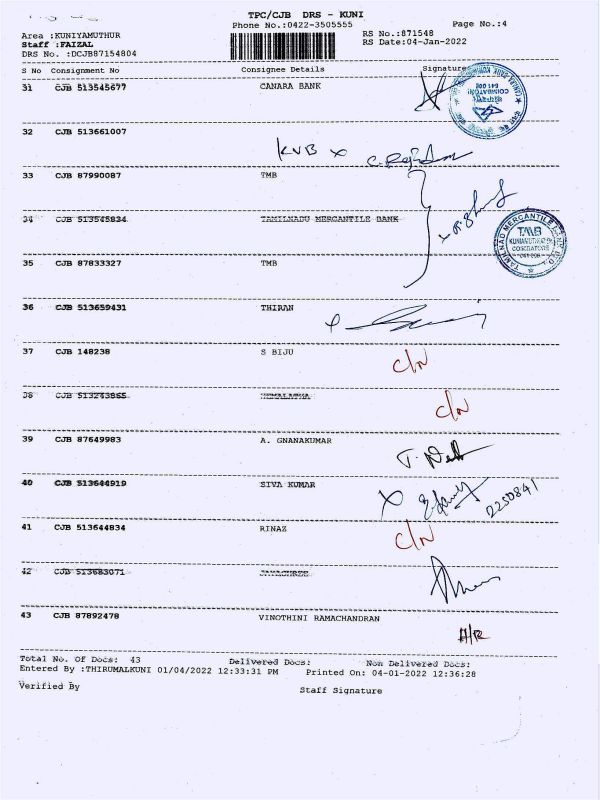 TPC/CJB DRS - KUNI
Phone No.:0422-3505555 Page No.:4
Area :KUNIYAMUTHUR RS No.:871548
Staff :FAIZAL RS Date:04-Jan-2022
DRS No. :DCJB87154804
S No Consignment No Consignee Details Signature
31 CJB 513545677 CANARA BANK
32 CJB 513661007
KVB x
33 CJB 87990087 TMB
34 CJB 513545834 TAMILNADU MERCANTILE BANK
TAMILNAD MERCANTILE BANK LTD
TMB
COIMBATORE
35 CJB 87833327 TMB
36 CJB 513659431 THIRAN
37 CJB 148238 S BIJU
C/N
38 CJB 513243865 HEMALATHA
C/N
39 CJB 87649983 A. GNANAKUMAR
40 CJB 513644919 SIVA KUMAR
X 2250841
41 CJB 513644834 RINAZ
C/N
42 CJB 513683071 JAYASHREE
43 CJB 87892478 VINOTHINI RAMACHANDRAN
A/R
Total No. Of Docs: 43 Delivered Docs: Non Delivered Docs:
Entered By :THIRUMALKUNI 01/04/2022 12:33:31 PM Printed On: 04-01-2022 12:36:28
Verified By Staff Signature